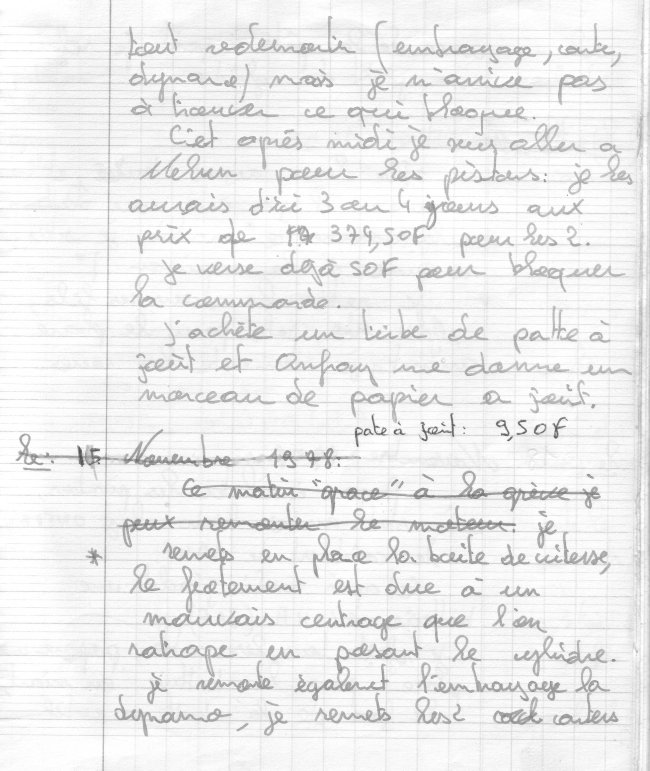 tout redemonter (embrayage, carter,
dynamo) mais je n'arrive pas
à trouver ce qui bloque.
Cet après midi je suis aller a
Melun pour les pistons: je les
aurais d'ici 3 ou 4 jours aux
prix de 379,50F pour les 2.
je verse déjà 50F pour bloquer
la commande.
j'achète un tube de patte à
joint et Anfray me donne un
morceau de papier a joint.
pate à joint: 9,50F
Le: 15 Novembre 1978:
Ce matin "grace" à la grève je
peux remonter le moteur. je
* remets en place la boite de vitesse,
le frotement est due à un
mauvais centrage que l'on
ratrape en posant le cylindre.
je remonte égalemet l'embrayage la
dynamo, je remets les 2 carters